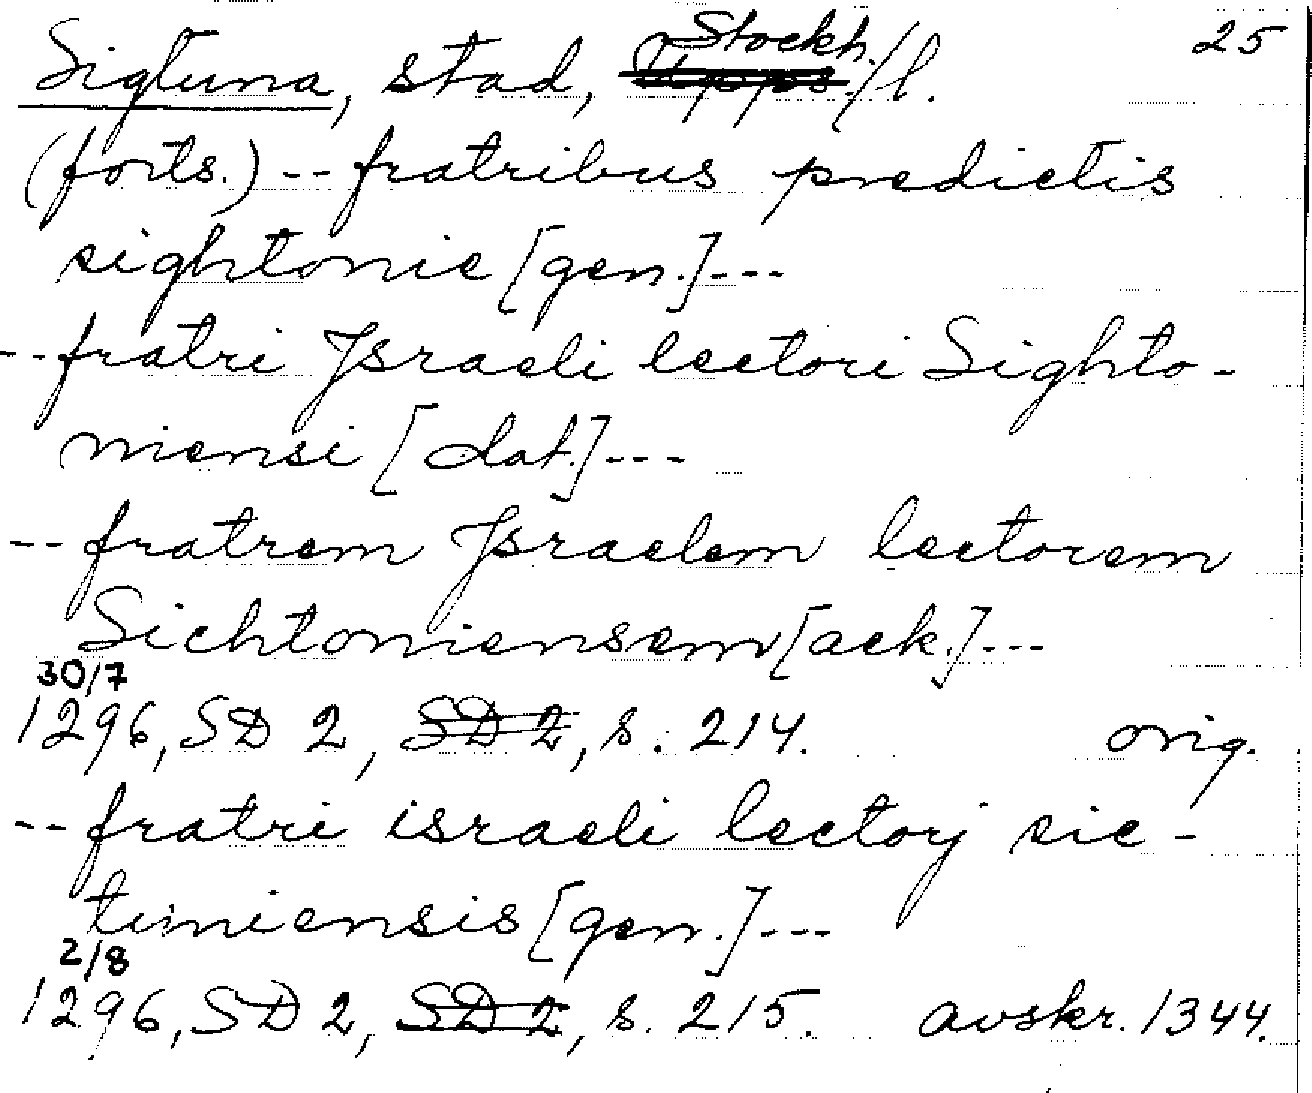 25
Sigtuna, stad, ~~Upps~~ Stockh./l.
(forts.) -- fratribus predictis
sightonie [gen.]---
-- fratri Israeli lectori Sighto-
niensi [dat.]---
-- fratrem Israelem lectorem
Sichtoniensem [ack.]---
30/7
1296, SD 2, ~~SD 2~~, s. 214. orig.
-- fratri israeli lectorj sic-
tuniensis [gen.]---
2/8
1296, SD 2, ~~SD 2~~, s. 215. avskr. 1344.